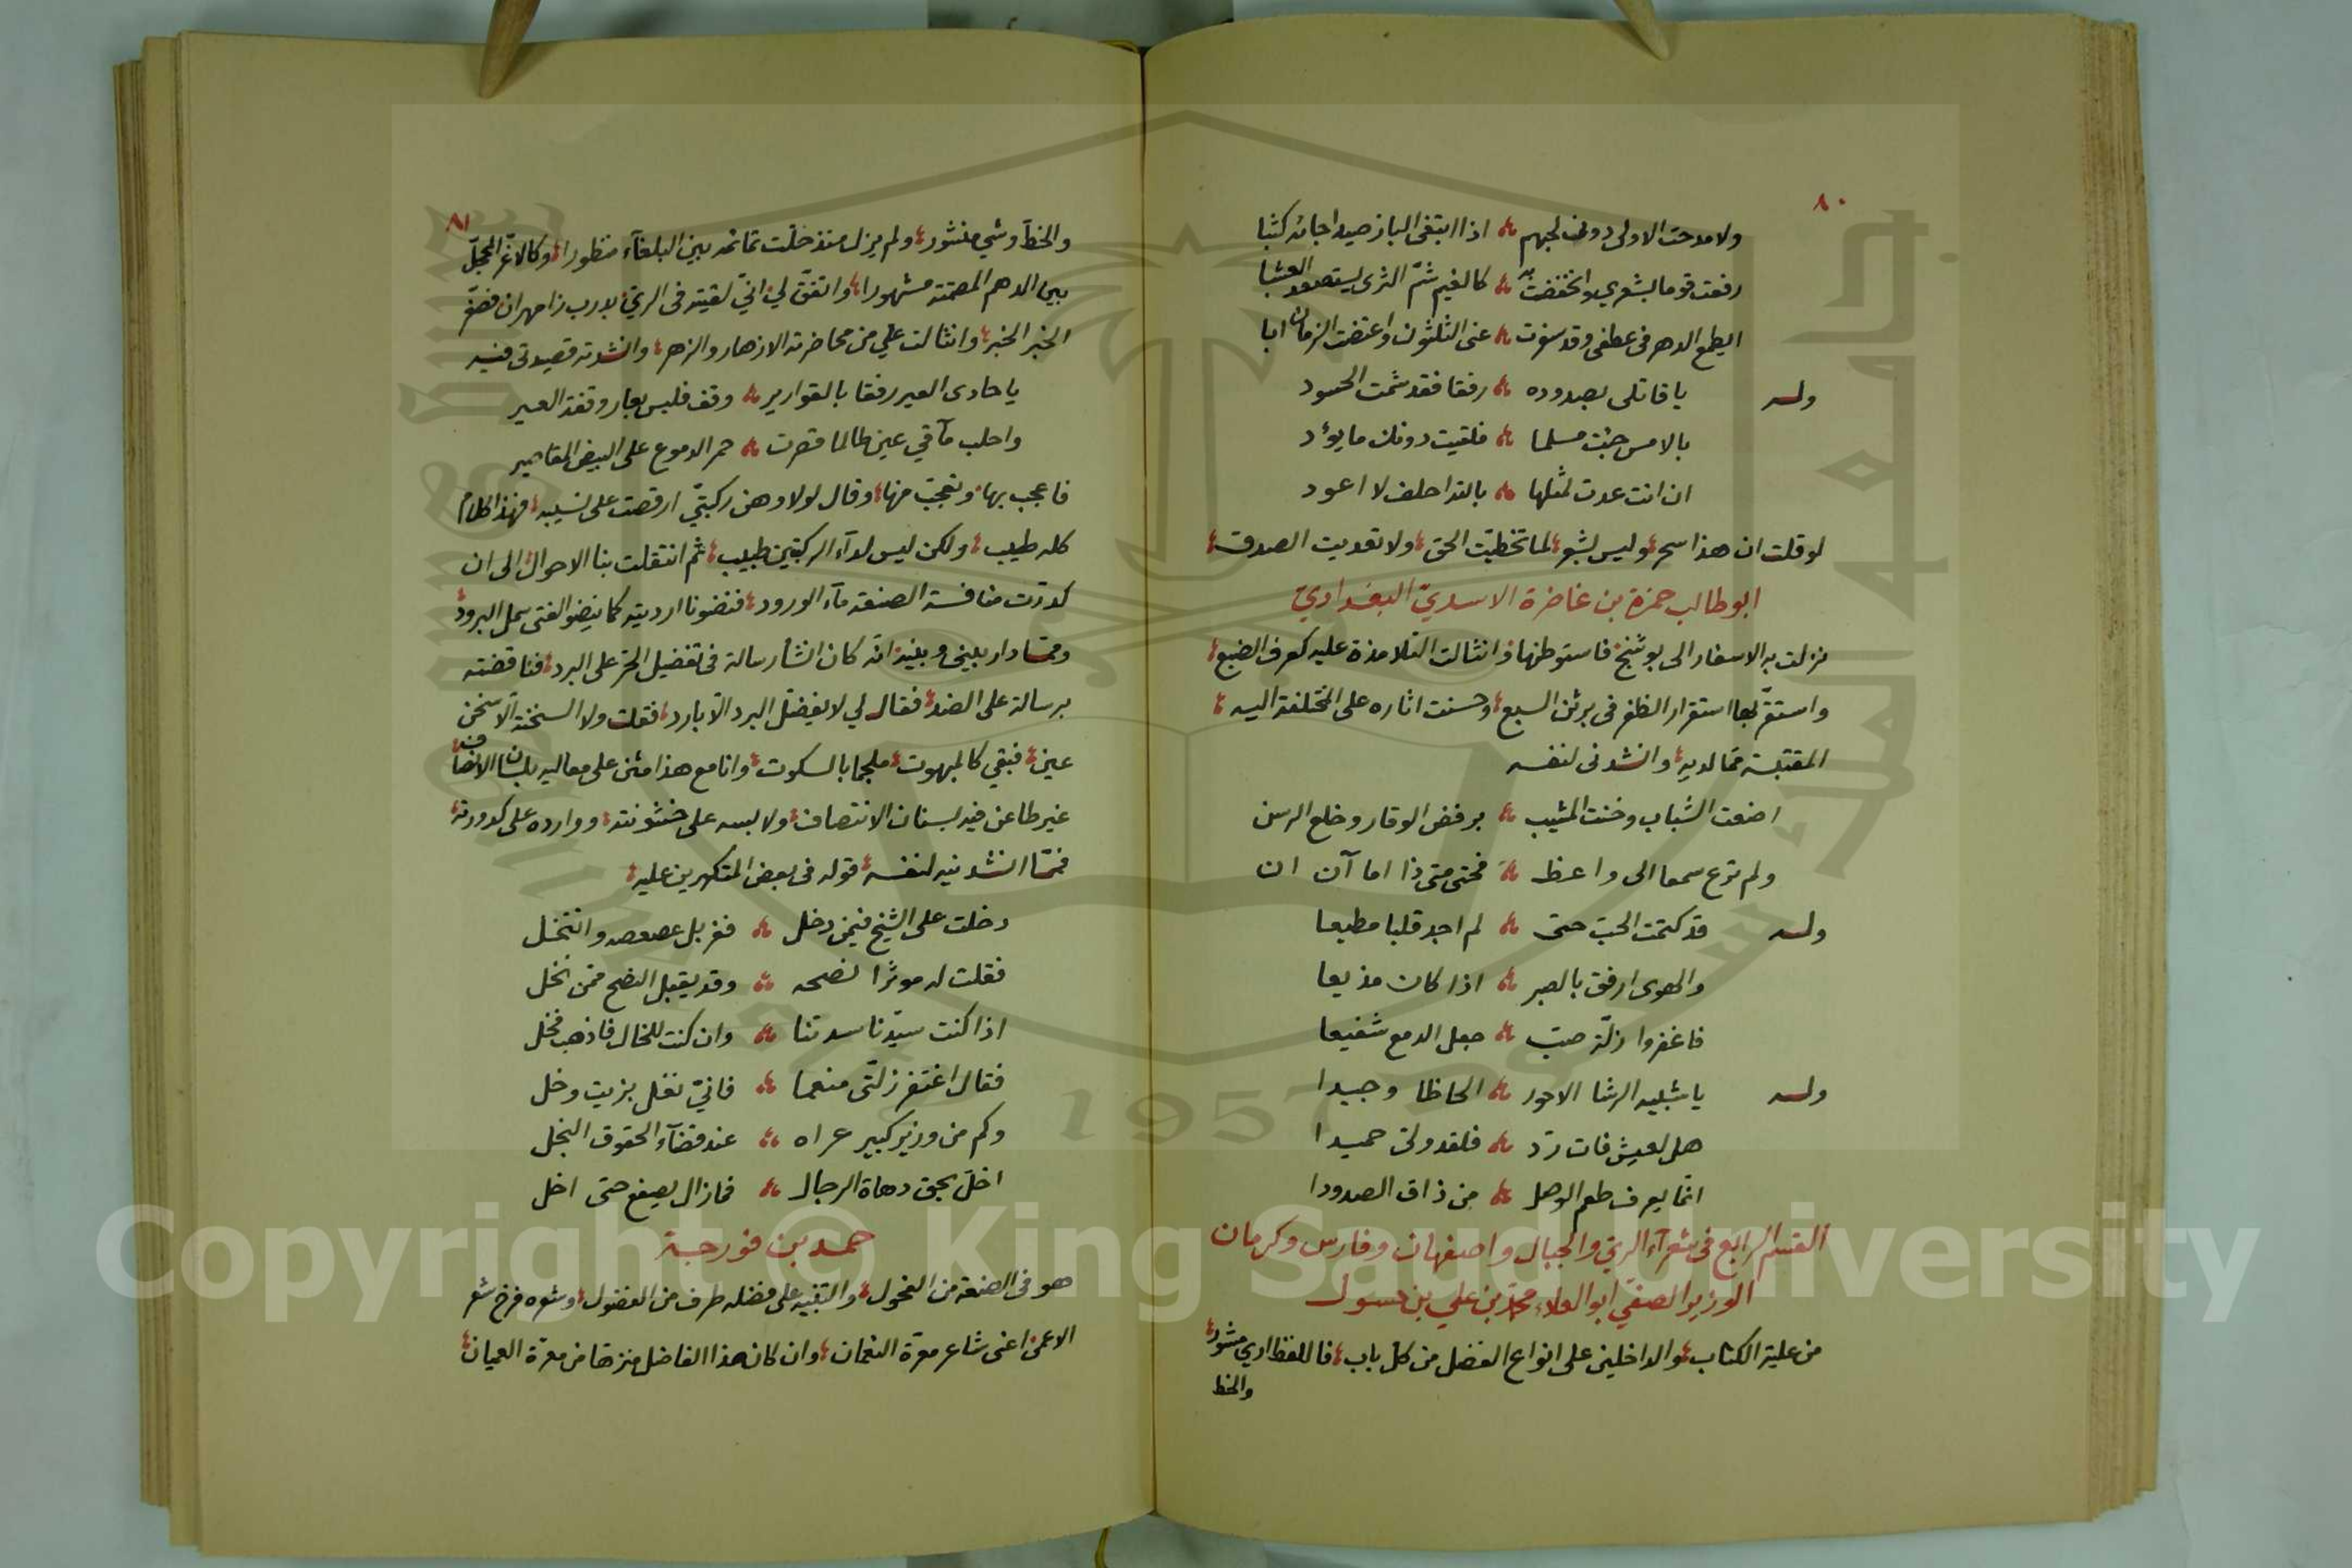 ٨٠
ولا مدحت الاولى دونك لجبهم اذا ابتغى الباز صيدا جانه كثبا
رفعت قوما بشعري وانخفضت به كالغيم شمّ الثرى ليستصعد العشبا
ايطمع الدهر في عطفي وقد سفرت عنى الثلثون واعتضت الزمان ابا
وله يا قاتلى بصدوده رفقا فقد شمت الحسود
بالامس جئت مسلما فلقيت دونك ما يوٴد
ان انت عدت لمثلها بالله احلف لا اعود
لو قلت ان هذا سحر وليس بشعر لما تخطيّت الحق ولا تعديت الصدق
ابو طالب حمزة بن غاضرة الاسديّ البغداديّ
نزلت به الاسفار الى بوشنج فاستوطنها فانثالت التلامذة عليه كعرف الضبع
واستقرّ بها استقرار الظفر فى برثن السبع وحسنت اثاره على المختلفة اليه
المقتبسة ممّا لديه وانشدنى لنفسه
اضعت الشباب وخنت المشيب برفض الوقار وخلع الرسن
ولم ترع سمعا الى واعظ فحتى متى ذا اما آن ان
وله قد كتمت الحبّ حتى لم اجد قلبا مطيعا
والهوى ارفق بالصبر اذا كان مذيعا
فاغفروا زلّة صبّ جعل الدمع شفيعا
وله يا شبيه الرشا الاحور الحاظا وجيدا
هل لعيش فات ردّ فلقد ولىّ حميدا
انّما يعرف طعم الوصل من ذاق الصدودا
القسم الرابع فى شعرآء الريّ والجبال واصفهان وفارس وكرمان
الوزير الصفيّ ابو العلاء محمّد بن علي بن حسول
من علية الكتاب والداخلين على انواع الفضل من كل باب فاللفظ اري مشور
والخط
٨١
والخط وشي منثور ولم يزل منذ حلّت تمائمه بين البلغآء منظورا وكالاغرّ المحجلّ
بين الدهم المصمتة مشهورا واتفق لي انيّ لقيته فى الريّ بدرب زامهران فصغّر
الخبر الخبر وانثالت علي من محاضرته الازهار والزهر وانشدته قصيدتى فيه
يا حادى العير رفقا بالقوارير وقف فليس بعار وقفة العير
واحلب مآقي عين طالما قصرت حمر الدموع على البيض المقاصير
فاعجب بها وتعجبّ منها وقال لولا وهن ركبتيّ لرقصت على نسيبه فهذا كلام
كله طيب ولكن ليس لدآء الركبتين طبيب ثم انتقلت بنا الاحوال الى ان
كدرّت منافسة الصنعة مآء الورود فنضونا ارديته كما ينضو الفتى سمل البرود
وممّا دار بيني وبينه انه كان انشأ رسالة فى تفضيل الحرّ على البرد فناقضته
برسالة على الضد فقال لي لا يفضلّ البرد الّا بارد فقلت ولا السخنة الّا سخن
عين فبقي كالمبهوت ملجما بالسكوت وانا مع هذا مثن على معاليه بلسان الانصاف
غير طاعن فيه بسنان الانتصاف ولابسه على خشونته ووارده على كدورته
فممّا انشدنيه لنفسه قوله فى بعض المتكبرين عليه
دخلت على الشيخ فيمن دخل فغربل عصعصه وانتخل
فقلت له موثرا نصحه وقد يقبل النصح ممّن نخل
اذا كنت سيدّنا سدتنا وان كنت للخال فاذهب فخل
فقال اغتفر زلتّى منعما فانيّ نغل بزيت وخل
وكم من وزير كبير عراه عند قضآء الحقوق البخل
اخلّ بحق دهاة الرجال فما زال يصفع حتى اخل
حمد بن فورجة
هو فى الصنعة من الفحول والتنبيه على فضله طرف من الفضول وشعره فرخ شعر
الاعمى اعنى شاعر معرّة النعمان وان كان هذا الفاضل منزها من معرّة العميان
Copyright © King Saud University
1957